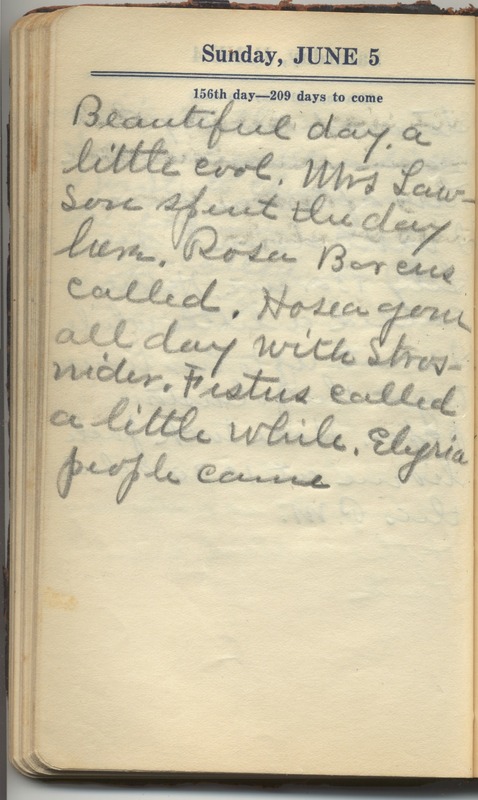 Sunday, JUNE 5
156th day—209 days to come
Beautiful day. a
little cool. Mrs Law-
son spent the day
here. Rosa Borens
called. Hosea gone
all day with Stros-
nider. Festus called
a little while. Elyria
people came